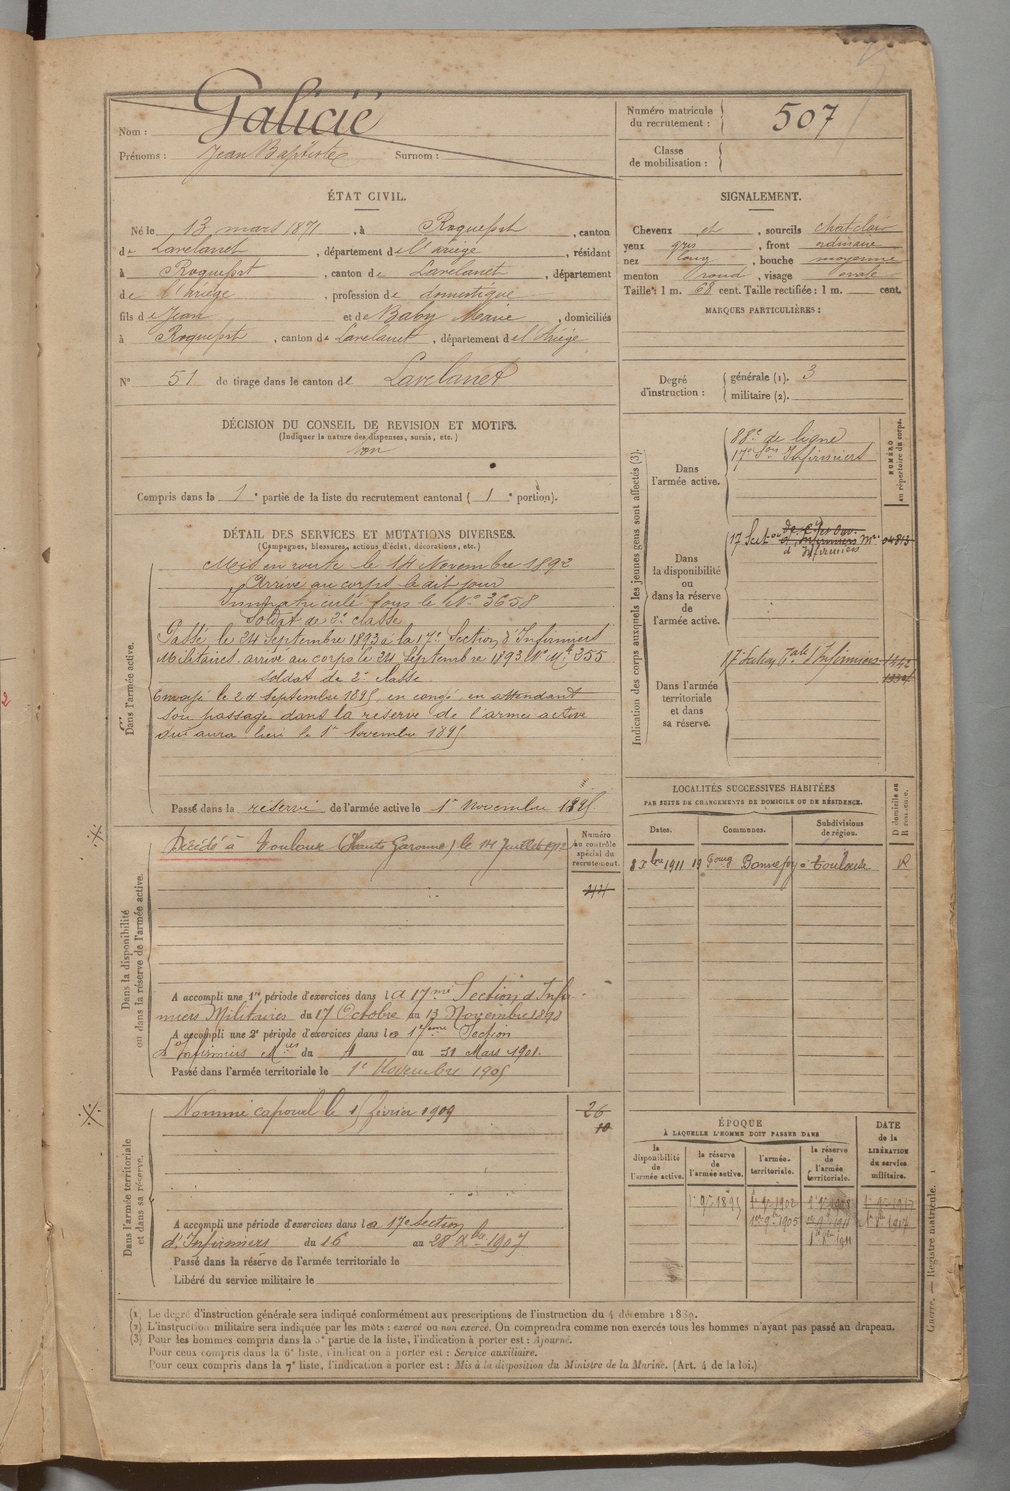 Nom : Galicié
Prénoms : Jean Baptiste Surnom :
Numéro matricule du recrutement : 507
Classe de mobilisation :
ÉTAT CIVIL.
Né le 13 mars 1871, à Roquefort, canton
de Lavelanet, département de l'Ariège, résidant
à Roquefort, canton de Lavelanet, département
de l'Ariège, profession de domestique
fils de Jean et de Baby Marie, domiciliés
à Roquefort, canton de Lavelanet, département de l'Ariège
N° 51 de tirage dans le canton de Lavelanet
SIGNALEMENT.
Cheveux et, sourcils chat clair
yeux gris, front ordinaire
nez long, bouche moyenne
menton rond, visage ovale
Taille : 1 m. 68 cent. Taille rectifiée : 1 m. cent.
MARQUES PARTICULIÈRES :
Degré d'instruction : générale (1). 3
militaire (2).
DÉCISION DU CONSEIL DE REVISION ET MOTIFS.
(Indiquer la nature des dispenses, sursis, etc.)
Bon
Compris dans la 1e partie de la liste du recrutement cantonal ( 1e portion).
DÉTAIL DES SERVICES ET MUTATIONS DIVERSES.
(Campagnes, blessures, actions d'éclat, décorations, etc.)
Dans l'armée active.
Mis en route le 14 Novembre 1892
Arrivé au corps le dit jour
Immatriculé sous le N° 3658
Soldat de 2e classe
Passé le 24 Septembre 1893 à la 17e Section d'Infirmiers
Militaires, arrivé au corps le 24 Septembre 1893 N° Mle 255
soldat de 2e classe.
Envoyé le 24 Septembre 1895 en congé en attendant
son passage dans la réserve de l'armée active
qui aura lieu le 1er Novembre 1895
Passé dans la réserve de l'armée active le 1er Novembre 1895
Dans la disponibilité ou dans la réserve de l'armée active.
Numéro au contrôle spécial du recrutement.
Décédé à Toulouse (Haute Garonne) le 14 Juillet 1912
44
A accompli une 1re période d'exercices dans la 17me Section d'Infir-
miers Militaires du 17 Octobre au 13 Novembre 1898
A accompli une 2e période d'exercices dans la 17ème Section
d'Infirmiers Mres du 4 au 31 Mars 1901.
Passé dans l'armée territoriale le 1er Novembre 1905
Dans l'armée territoriale et dans sa réserve.
Nommé caporal le 15 février 1909
26
10
A accompli une période d'exercices dans la 17e Section
d'Infirmiers du 16 au 28 Xbre 1907
Passé dans la réserve de l'armée territoriale le
Libéré du service militaire le
Indication des corps auxquels les jeunes gens sont affectés (3).
NUMÉRO au répertoire du corps.
Dans l'armée active.
88e de ligne
17e Son Infirmiers
Dans la disponibilité ou dans la réserve de l'armée active.
17 Secton
d'Infirmiers Mres 04813
Dans l'armée territoriale et dans sa réserve.
17e Section Tale d'Infirmiers 1442
LOCALITÉS SUCCESSIVES HABITÉES
PAR SUITE DE CHANGEMENTS DE DOMICILE OU DE RÉSIDENCE.
Dates. Communes. Subdivisions de région. D domicile ou R résidence.
23 bre 1911 19 Fbourg Bonnefoy à Toulouse R
ÉPOQUE
À LAQUELLE L'HOMME DOIT PASSER DANS
la disponibilité de l'armée active. la réserve de l'armée active. l'armée territoriale. la réserve de l'armée territoriale. DATE de la LIBÉRATION du service militaire.
1er 9bre 1895 1er 9bre 1902 1er 9bre 1908 1er 9bre 1917
1er 9bre 1905 1er 9bre 1911 1917
1911
(1) Le degré d'instruction générale sera indiqué conformément aux prescriptions de l'instruction du 4 décembre 1889.
(2) L'instruction militaire sera indiquée par les mots : exercé ou non exercé. On comprendra comme non exercés tous les hommes n'ayant pas passé au drapeau.
(3) Pour les hommes compris dans la 5e partie de la liste, l'indication à porter est : Ajourné.
Pour ceux compris dans la 6e liste, l'indication à porter est : Service auxiliaire.
Pour ceux compris dans la 7e liste, l'indication à porter est : Mis à la disposition du Ministre de la Marine. (Art. 4 de la loi.)
Guerre. — Registre matricule.